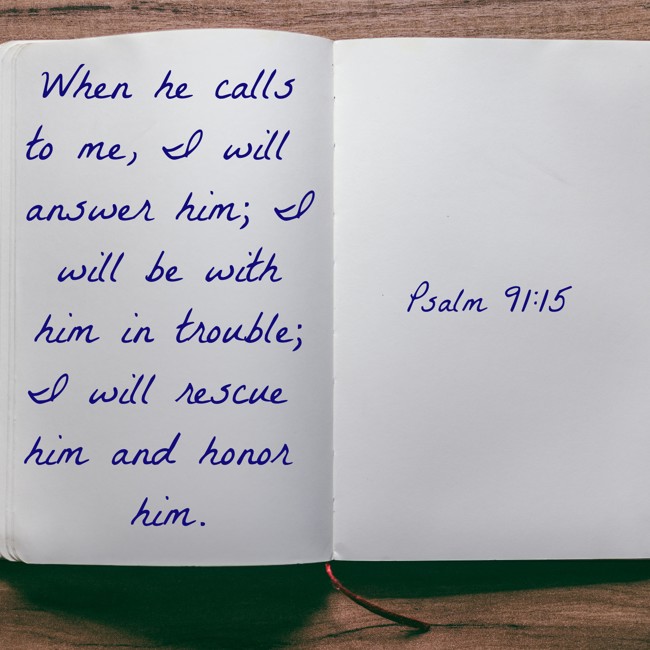 When he calls
to me, I will
answer him; I
will be with
him in trouble;
I will rescue
him and honor
him.
Psalm 91:15